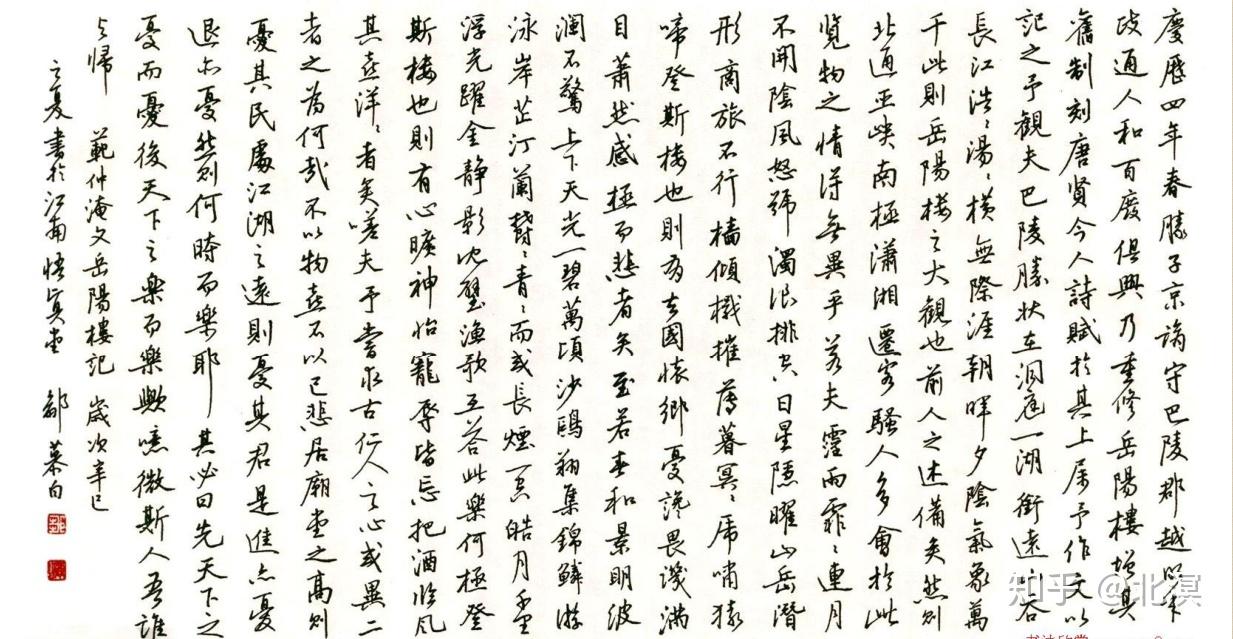 慶曆四年春滕子京謫守巴陵郡越明年
政通人和百廢俱興乃重修岳陽樓增其
舊制刻唐賢今人詩賦於其上属予作文以
記之予觀夫巴陵勝狀在洞庭一湖銜遠山吞
長江浩〻湯〻橫無際涯朝暉夕陰氣象萬
千此則岳陽樓之大觀也前人之述備矣然則
北通巫峽南極瀟湘遷客騷人多會於此
覽物之情得無異乎若夫霪雨霏〻連月
不開陰風怒號濁浪排空日星隱曜山岳潛
形商旅不行檣傾檝摧薄暮冥〻虎嘯猿
啼登斯樓也則有去國懷鄉憂讒畏譏滿
目蕭然感極而悲者矣至若春和景明波
瀾不驚上下天光一碧萬頃沙鷗翔集錦鱗游
泳岸芷汀蘭鬱〻青〻而或長煙一空皓月千里
浮光躍金靜影沈璧漁歌互答此樂何極登
斯樓也則有心曠神怡寵辱皆忘把酒臨風
其喜洋〻者矣嗟夫予嘗求古仁人之心或異二
者之為何哉不以物喜不以己悲居廟堂之高則
憂其民處江湖之遠則憂其君是進亦憂
退亦憂然則何時而樂耶 其必曰先天下之
憂而憂後天下之樂而樂歟噫微斯人吾誰
與歸 範仲淹文岳陽樓記 歲次辛巳
之夏書於江南悟真堂 慕白
知乎 @北溟